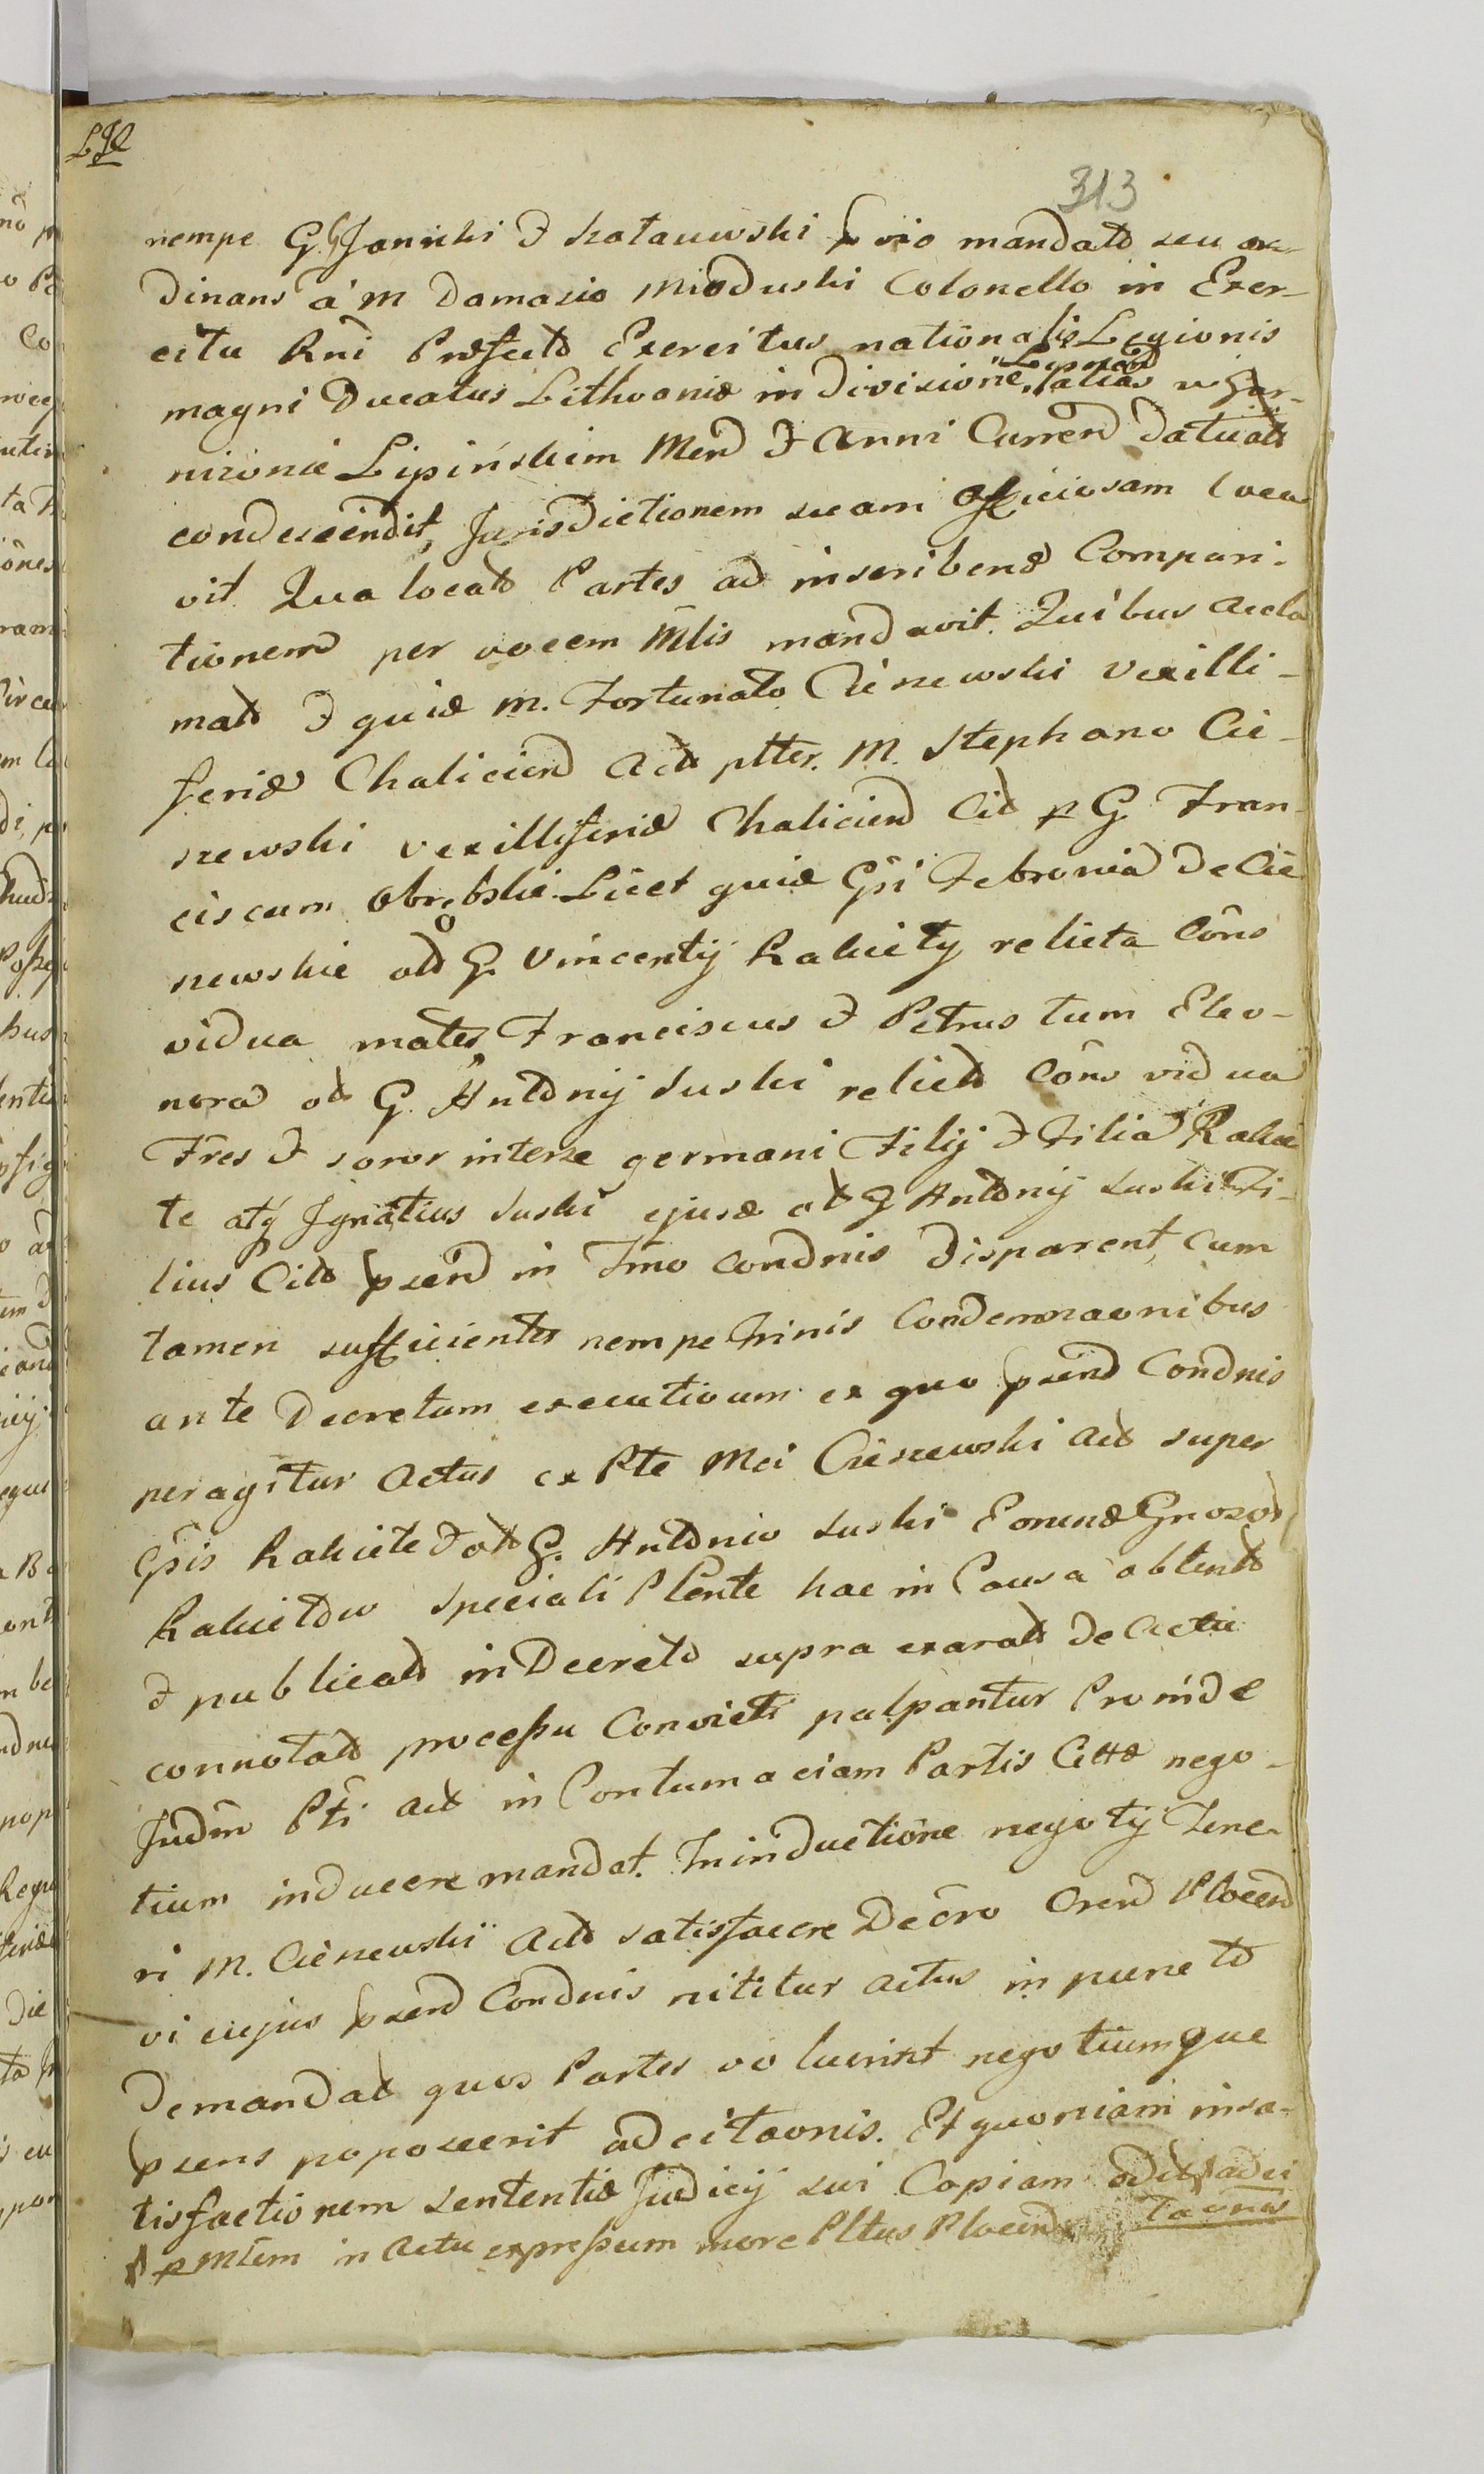 313
nempe G. G. Janicki & Szatawski prvio mandato seu or-
dinans à M Damasio Mioduski Colonello in Exer-
citu Rni Præfecto Exercitus nationalis Legionis
magni Ducatus Lithvaniæ in divisione Lipnen alias w Gar-
nizonie Lipińskim Men & Anni Curren datuato
condescendit, Jurisdictionem suam Officiosam loca
vit. Qua locato Partes ad inscribend Compari-
tionem per vocem Mlis mandavit. Quibus accla
mato & quid M. Fortunato Cieszewski vexilli-
feridæ Chalicien Acto ptter. M. Stephano Cie-
szewski vexilliferidæ Chalicien Cit p G Fran-
ciscum Obrębski. Licet quid Gsi Febronia de Cie
szewskie olo G. Vincentij Rakiety relicta Cons
vidua mater, Franciscus & Petrus tum Eleo-
nora olo G. Antonij Suski relicto Cons vidua
Fres & soror intersse germani Filij & Filia Rakie
te atq Ignatius Suski ejusd olo G Antonij Suski Fi-
lius Citi pssen in Tmo Condnis disparent, cum
tamen sufficientr nempe trinis Condemnaonibus
ante Decretum executivum ex quo pssen Condnis
peragitur Actus ex Pte Mci Cieszewski Act super
Gsis Rakiete & olo G. Antonio Suski Eorund Gnosod
Rakietow speciali Plente hac in Causa obtento
& publicato in Decreto supra exarato de Actu
connotato processu Convicti palpantur Proinde
Judm Pti Act in Contumaciam Partis Cittæ nego-
tium inducere mandat. In inductione negotij Tene-
ri M. Cieszewski Acto satisfacere Decro Oren Plocen
vi cujus pssen Condnis nititur actus in puncto
demandat quos Partes voluerint negotiumque
pssens poposcerit adcitaonis. Et quoniam insa-
tisfactionem sententiæ Judicij sui Copiam adcitaonis
p Mlem in Actu expressum more Pltus Plocen